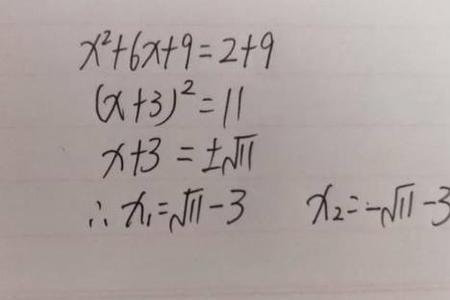 x²+6x+9=2+9
(x+3)²=11
x+3=±√11
∴ x₁=√11-3 x₂=-√11-3